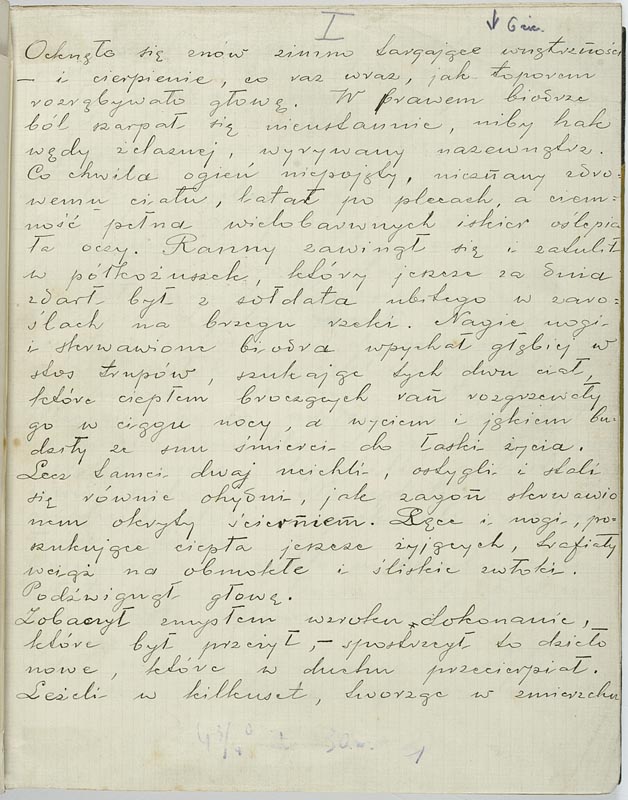 I
Ocknęło się znów zimno targające wnętrzności
— i cierpienie, co raz wraz, jak toporem
rozrąbywało głowę. W prawem biodrze
ból szarpał się nieustannie, niby hak
wędy żelaznej, wyrywany nazewnątrz.
Co chwila ogień niepojęty, nieznany zdro-
wemu ciału, latał po plecach, a ciem-
ność pełna wielobarwnych iskier oślepia
ła oczy. Ranny zawinął się i zatulił
w półkożuszek, który jeszcze za dnia
zdarł był z sołdata ubitego w zaro-
ślach na brzegu rzeki. Nagie nogi
i skrwawione biodra wpychał głębiej w
stos trupów, szukając tych dwu ciał,
które ciepłem broczących ran rozgrzewały
go w ciągu nocy, a wyciem i jękiem bu-
dziły ze snu śmierci do łaski życia.
Lecz tamci dwaj ucichli, ostygli i stali
się równie ohydni, jak zagon skrwawio
nem okryty ścierniem. Ręce i nogi, po-
szukujące ciepła jeszcze żyjących, trafiały
wciąż na obmokłe i śliskie zwłoki.
Podźwignął głowę.
Zobaczył zmysłem wzroku dokonanie,
które był przeżył, – spostrzegł to dzieło
nowe, które w duchu przecierpiał.
Leżeli w kilkuset, tworząc w zmierzchu
1